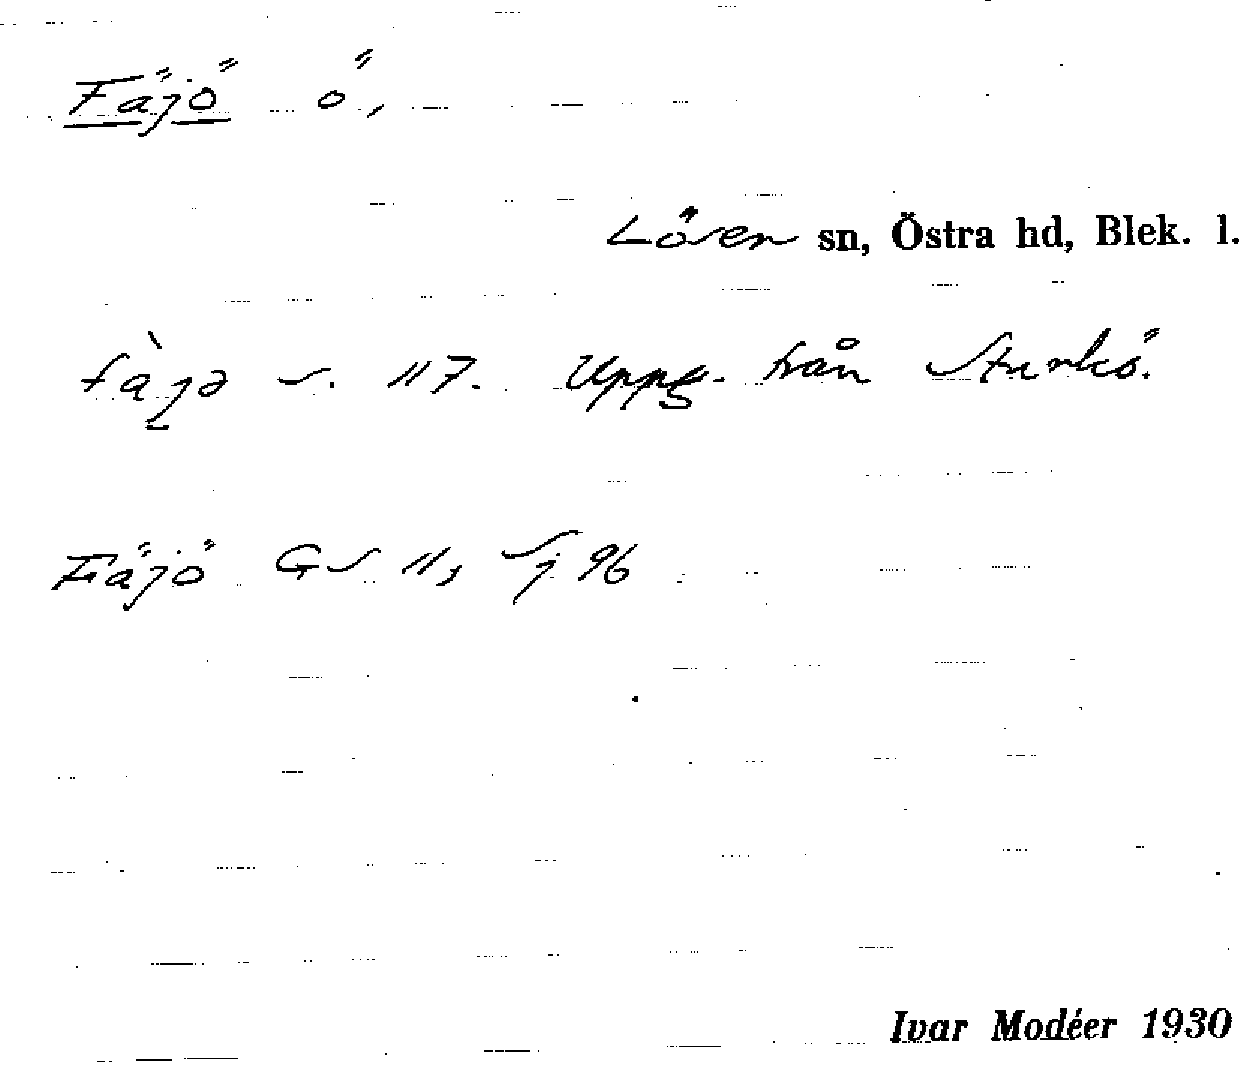 Fäjö ö,
Lösen sn, Östra hd, Blek. l.
fàjə s. 117. Uppg. från Sturkö.
Fäjö GS 11, Sj 96
Ivar Modéer 1930